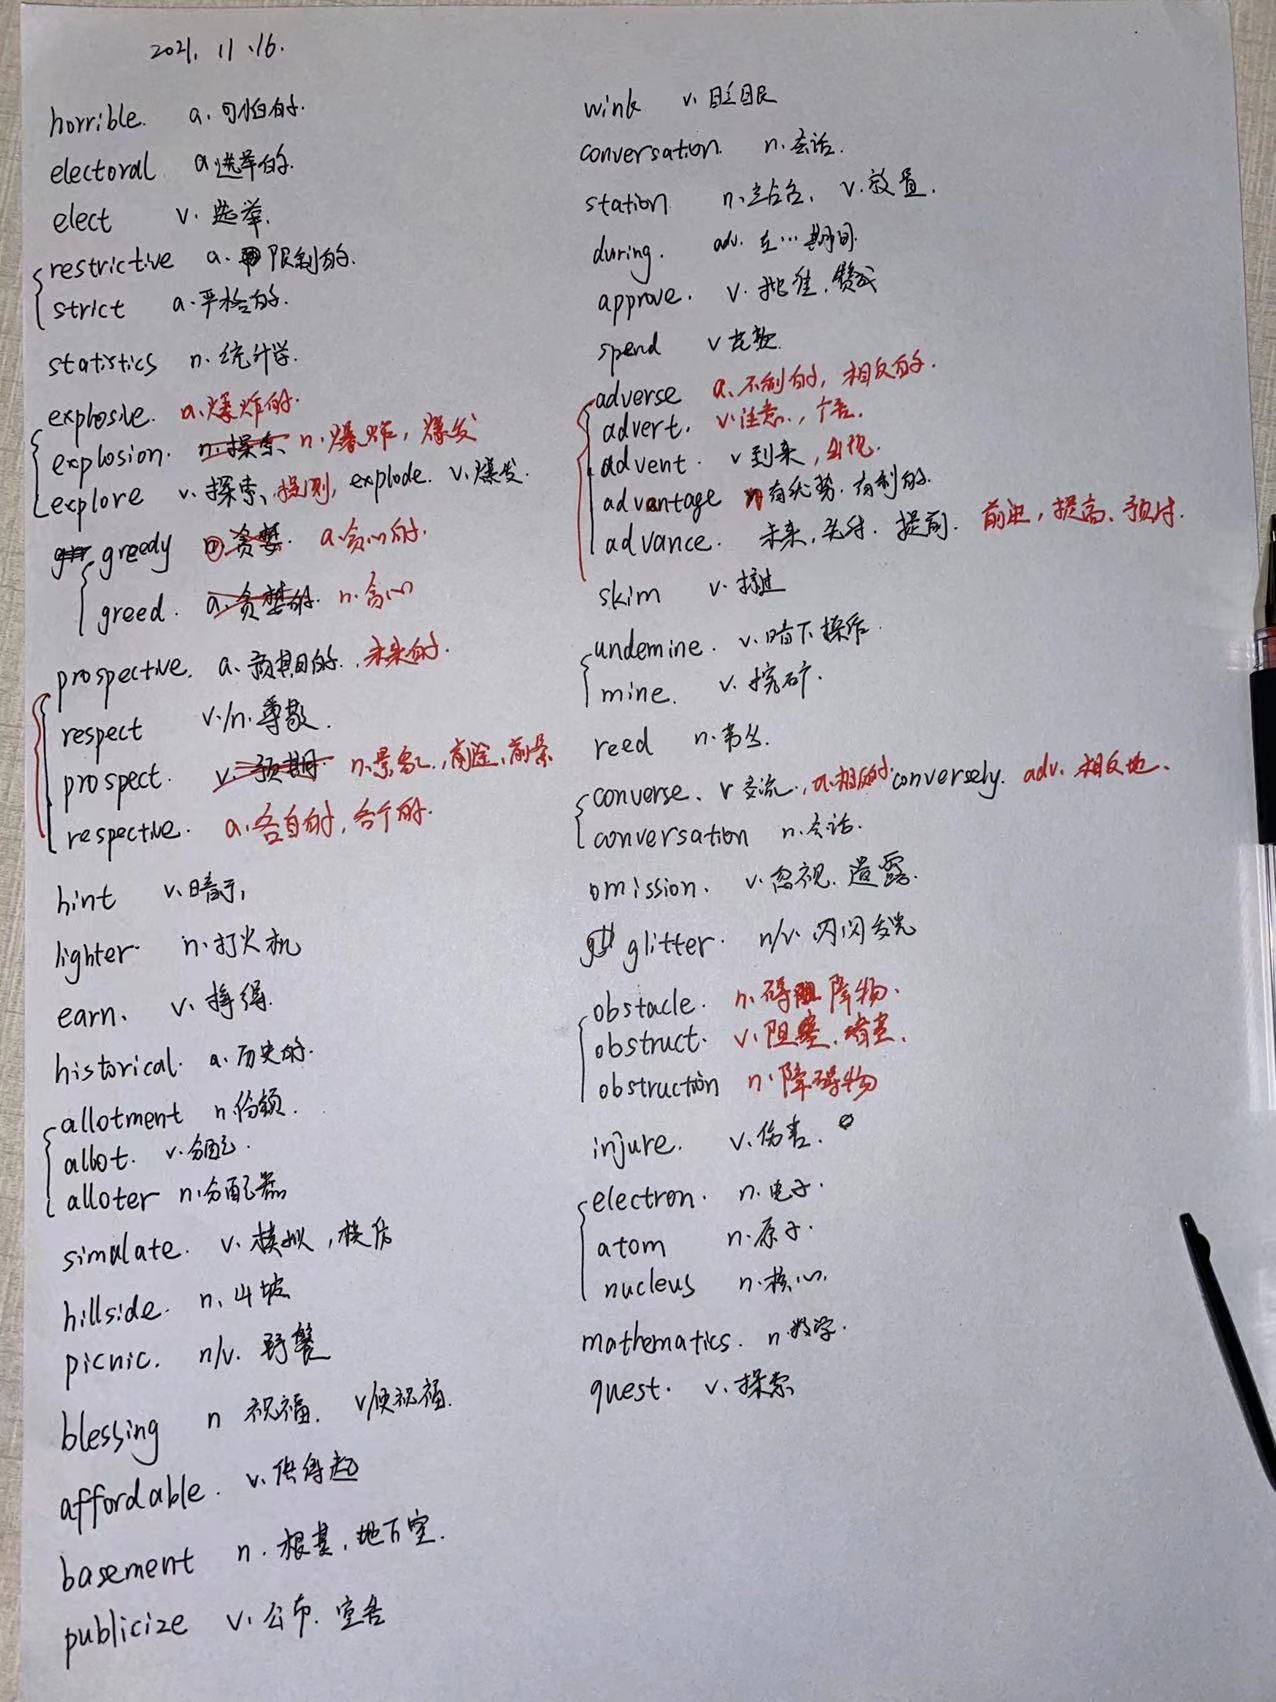 2021. 11 .16.
horrible. a. 可怕的.
electoral a.选举的.
elect v. 选举.
restrictive a. 限制的.
strict a.严格的.
statistics n. 统计学.
explosive. a.爆炸的.
explosion. n.探索 n.爆炸, 爆发
explore v.探索、探测, explode. v.爆发.
greedy n 贪婪. a.贪心的.
greed. a.贪婪的. n.贪心
prospective. a.预期的., 未来的.
respect v./n.尊敬.
prospect. v.预期. n.景象, 前途、前景
respective. a.各自的, 各个的.
hint v.暗示,
lighter n.打火机
earn. v.挣得.
historical. a.历史的.
allotment n.份额.
allot. v.分配.
alloter n.分配器
simulate. v.模拟,模仿
hillside. n.山坡
picnic. n/v. 野餐
blessing n 祝福. v使祝福.
affordable. v.供得起
basement n.根基,地下室.
publicize v.公布. 宣告
wink v.眨眼
conversation. n.会话.
station n.站台. v.放置.
during. adv. 在…期间.
approve. v.批准.赞成
spend v花款.
adverse a.不利的, 相反的.
advert. v.注意., 广告.
advent. v到来, 出现.
advantage n有优势.有利的.
advance. 未来, 提前. 前进, 提高、预付.
skim v.掠过
undemine. v.暗下操作.
mine. v.挖矿.
reed n.苇丛.
converse. v 交流., a.相反的. conversely. adv. 相反地.
conversation n.会话.
omission. v.忽视.遗露.
glitter. n/v.闪闪发光
obstacle. n.碍阻障物.
obstruct. v.阻塞.堵塞.
obstruction n.障碍物
injure. v.伤害.
electron. n.电子.
atom n.原子.
nucleus n.核心.
mathematics. n.数学.
quest. v.探索